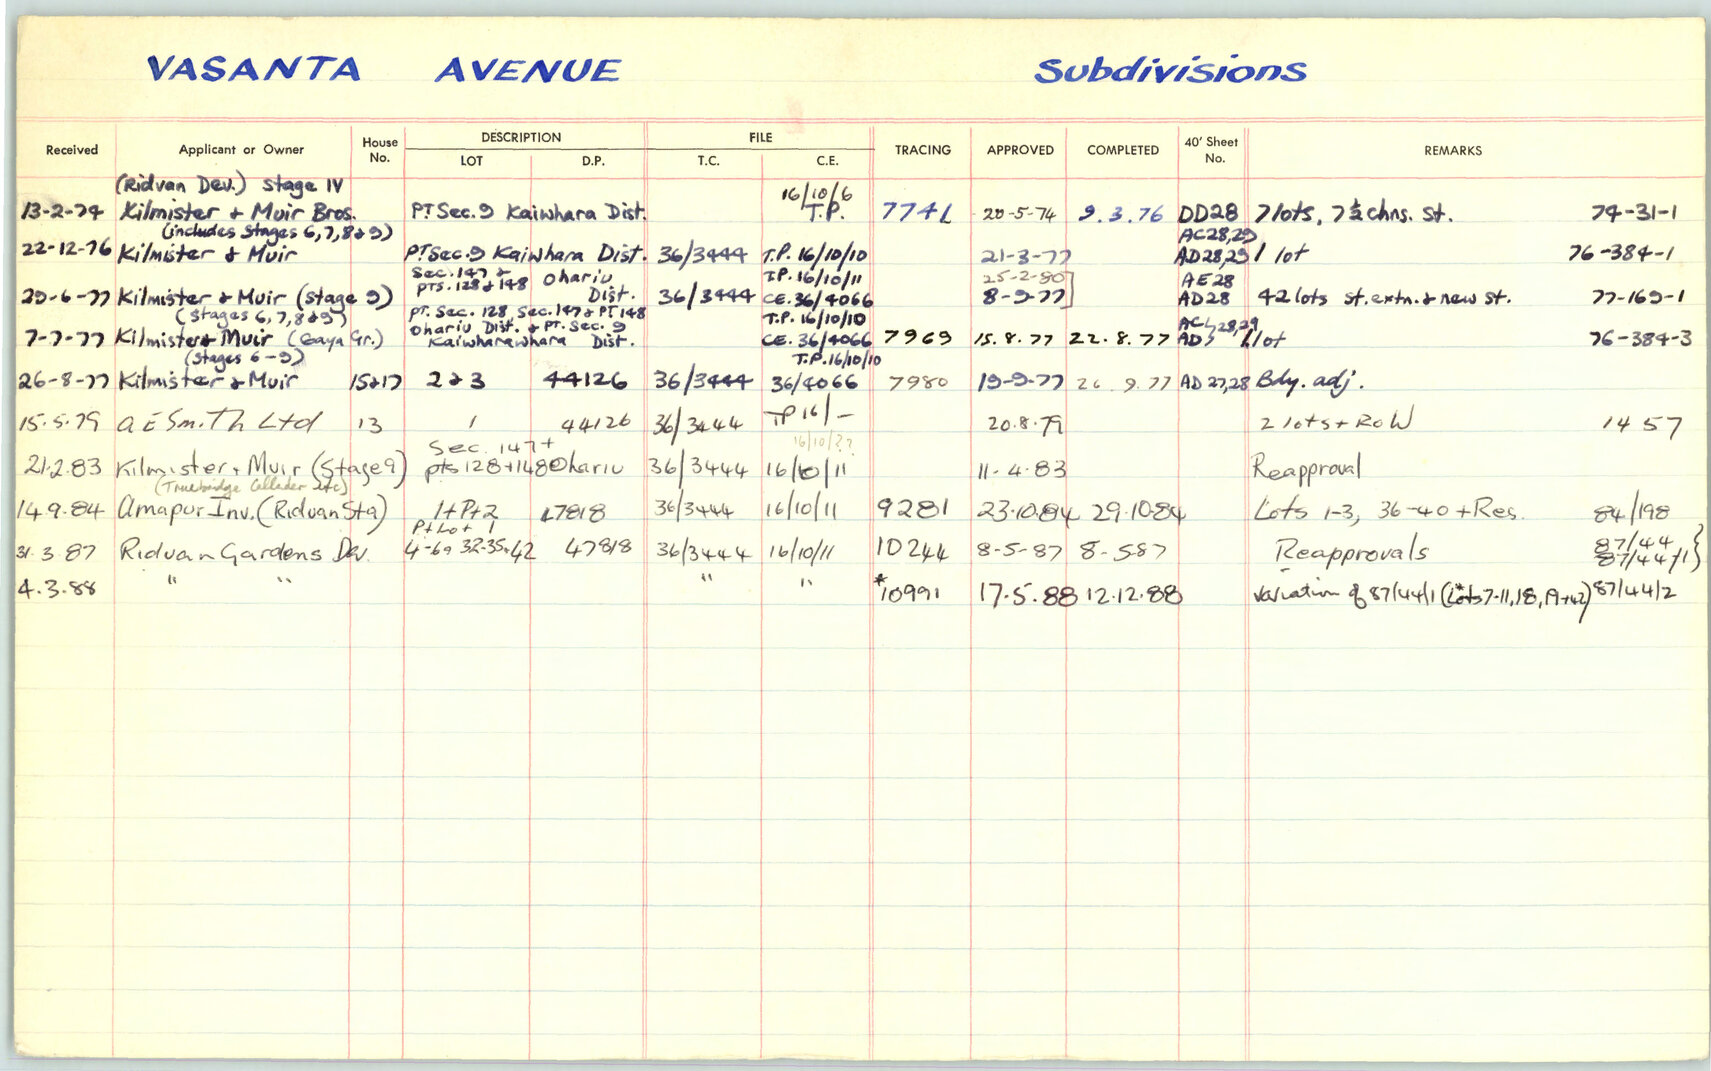 VASANTA AVENUE Subdivisions
Received Applicant or Owner House No. DESCRIPTION LOT D.P. FILE T.C. C.E. TRACING APPROVED COMPLETED 40' Sheet No. REMARKS
(Ridvan Dev.) Stage IV 16/10/6
13-2-74 Kilmister & Muir Bros. PT Sec. 9 Kaiwhara Dist. T.P. 774L 20-5-74 9.3.76 DD28 7 lots, 7½ chns. St. 74-31-1
(includes Stages 6,7,8&9) AC28,29
22-12-76 Kilmister & Muir PT Sec. 9 Kaiwhara Dist. 36/3444 T.P. 16/10/10 21-3-77 AD28,29 1 lot 76-384-1
Sec. 147 & Ohariu T.P. 16/10/11 25-2-80 AE28
29-6-77 Kilmister & Muir (Stage 9) PTS. 128 & 148 Dist. 36/3444 CE. 36/4066 8-9-77 AD28 42 lots St. extn. & new St. 77-169-1
(Stages 6,7,8&9) PT. Sec. 128, Sec. 147 & PT 148 T.P. 16/10/10
7-7-77 Kilmister & Muir (Gaya Gr.) Ohariu Dist. & PT. Sec. 9 Kaiwharawhara Dist. CE. 36/4066 7969 15.8.77 22.8.77 AC AD 28,29 1 lot 76-384-3
(Stages 6-9) T.P. 16/10/10
26-8-77 Kilmister & Muir 15&17 2 & 3 44126 36/3444 36/4066 7980 19-9-77 26.9.77 AD 27,28 Bdy. adj.
15.5.79 A E Smith Ltd 13 1 44126 36/3444 TP 16/— 20.8.79 2 lots + RoW 1457
Sec. 147 + 16/10/??
21.2.83 Kilmister + Muir (Stage 9) pts 128+148 Ohariu 36/3444 16/10/11 11-4-83 Reapproval
(Truebridge Callender etc)
14.9.84 Amapur Inv. (Ridvan Sta) 1+Pt2 47818 36/3444 16/10/11 9281 23.10.84 29.10.84 Lots 1-3, 36-40 + Res. 84/198
Pt Lot 1
31.3.87 Ridvan Gardens Dev. 4-6, 32-35, 42 47818 36/3444 16/10/11 10244 8-5-87 8-5-87 Reapprovals 87/44 87/44/1}
4.3.88 " " " " *10991 17.5.88 12.12.88 variation of 87/44/1 (Lots 7-11, 18, 19+42) 87/44/2